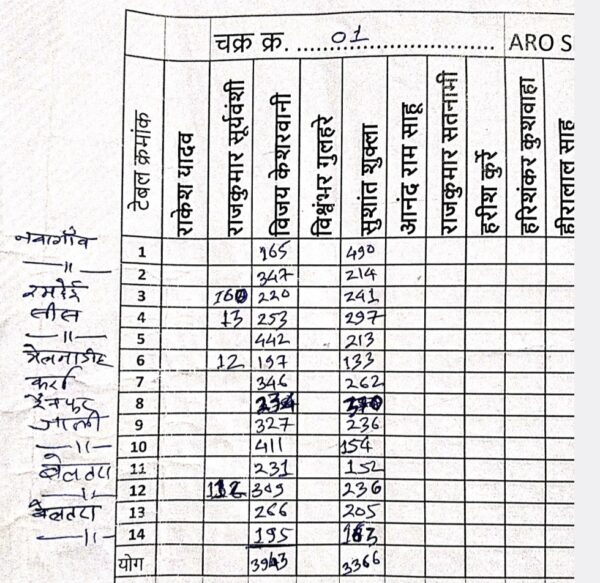 चक्र क्र. .....01..... ARO S
टेबल क्रमांक राकेश यादव राजकुमार सूर्यवंशी विजय केशरवानी विश्वंभर गुलहरे सुशांत शुक्ला आनंद राम साहू राजकुमार सतनामी हरीश कुर्रे हरिशंकर कुशवाहा हीरालाल साहू
नवागाँव 1 165 490
—〃— 2 347 214
3 160 220 241
4 13 253 297
—〃— 5 442 213
6 12 197 133
कर्रा 7 346 262
8 234 370
जाली 9 327 236
—〃— 10 411 154
बेलतरा 11 231 152
—〃— 12 112 309 236
बेलतरा 13 266 205
—〃— 14 195 163
योग 3943 3366